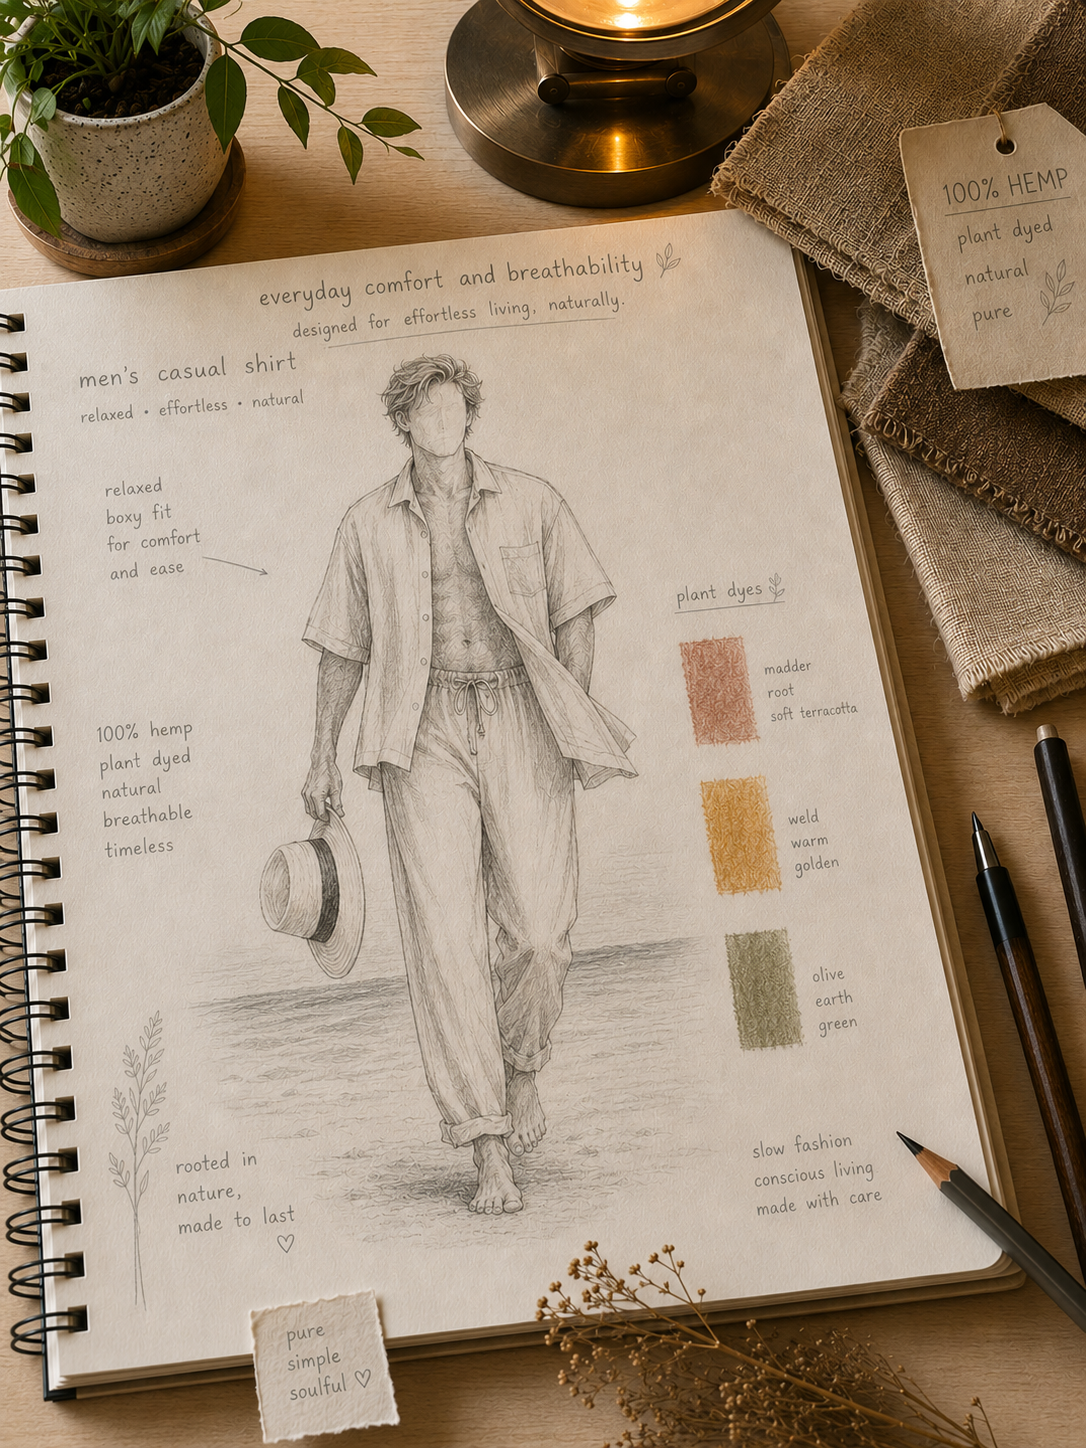 everyday comfort and breathability
designed for effortless living, naturally.
men's casual shirt
relaxed • effortless • natural
relaxed
boxy fit
for comfort
and ease
100% hemp
plant dyed
natural
breathable
timeless
plant dyes
madder
root
soft terracotta
weld
warm
golden
olive
earth
green
rooted in
nature,
made to last
slow fashion
conscious living
made with care
pure
simple
soulful
100% HEMP
plant dyed
natural
pure